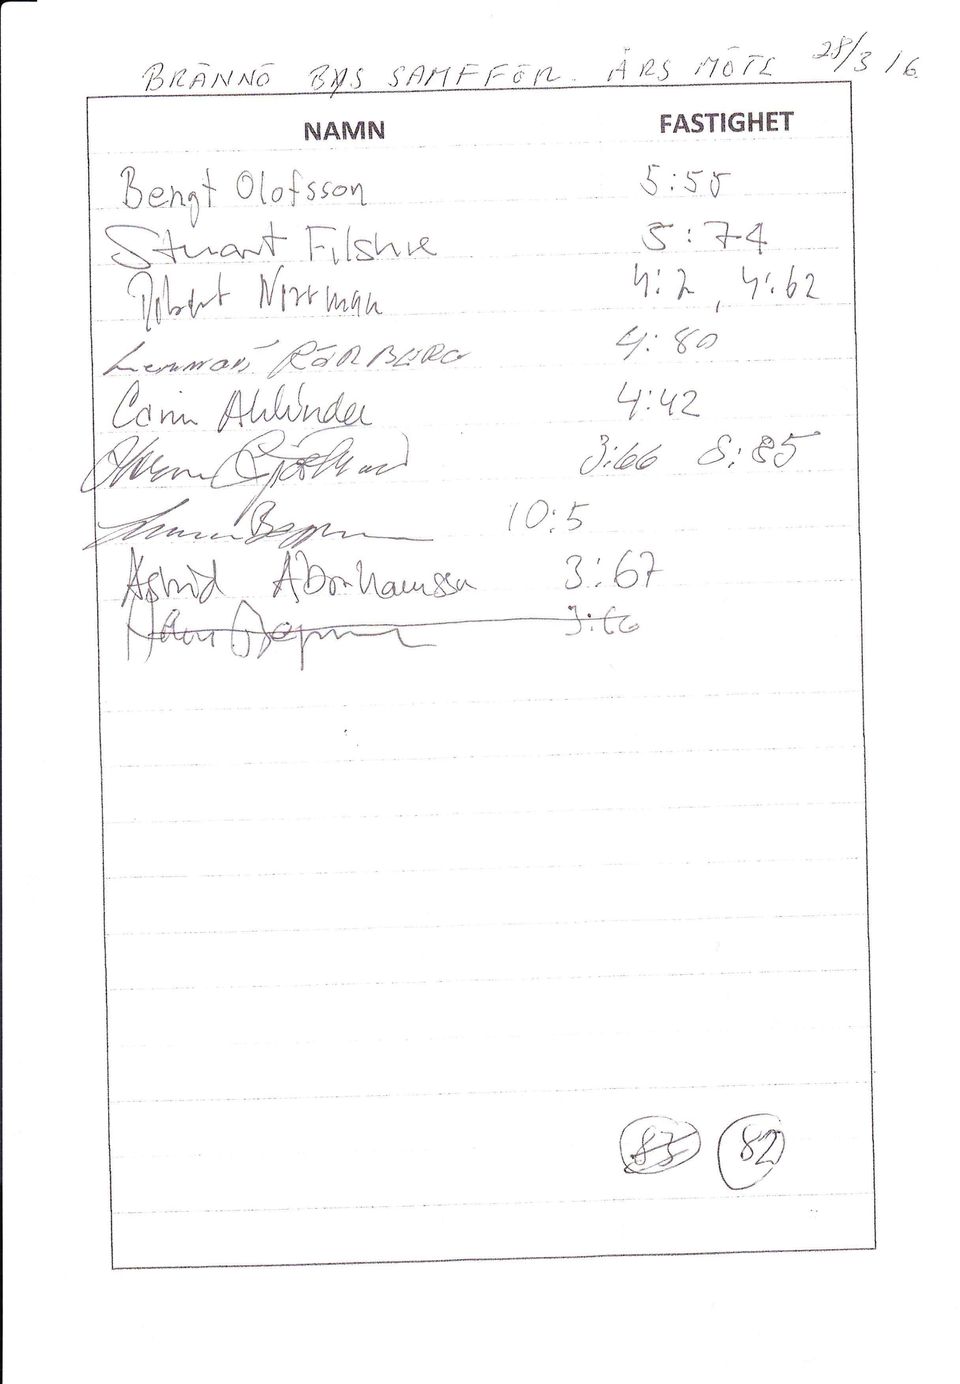 BRÄNNÖ BYS SAMFFÖR. ÅRS MÖTE 28/3 16
NAMN FASTIGHET
Bengt Olofsson 5:55
Stuart Filshie 5:74
Robert Norrman 4:2, 4:62
Lennart RÖRBERG 4:80
Carin Ahlinder 4:42
3:66 8:85
10:5
Astrid Abrahamsson 3:67
3:66
83 82